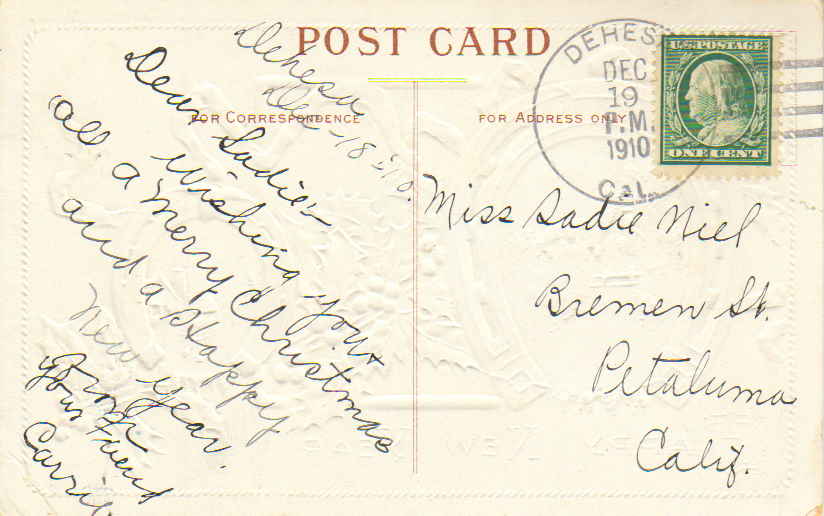 POST CARD
FOR CORRESPONDENCE
FOR ADDRESS ONLY
Dehesa
Dec - 18 - '10.
Dear Sadie -
Wishing you
all a Merry Christmas
and a Happy
New Year.
From
your Friend
Carrie
DEHES
DEC
19
P.M.
1910
CAL.
U.S. POSTAGE
ONE CENT
Miss Sadie Niel
Bremen St.
Petaluma
Calif.
NEW YEAR